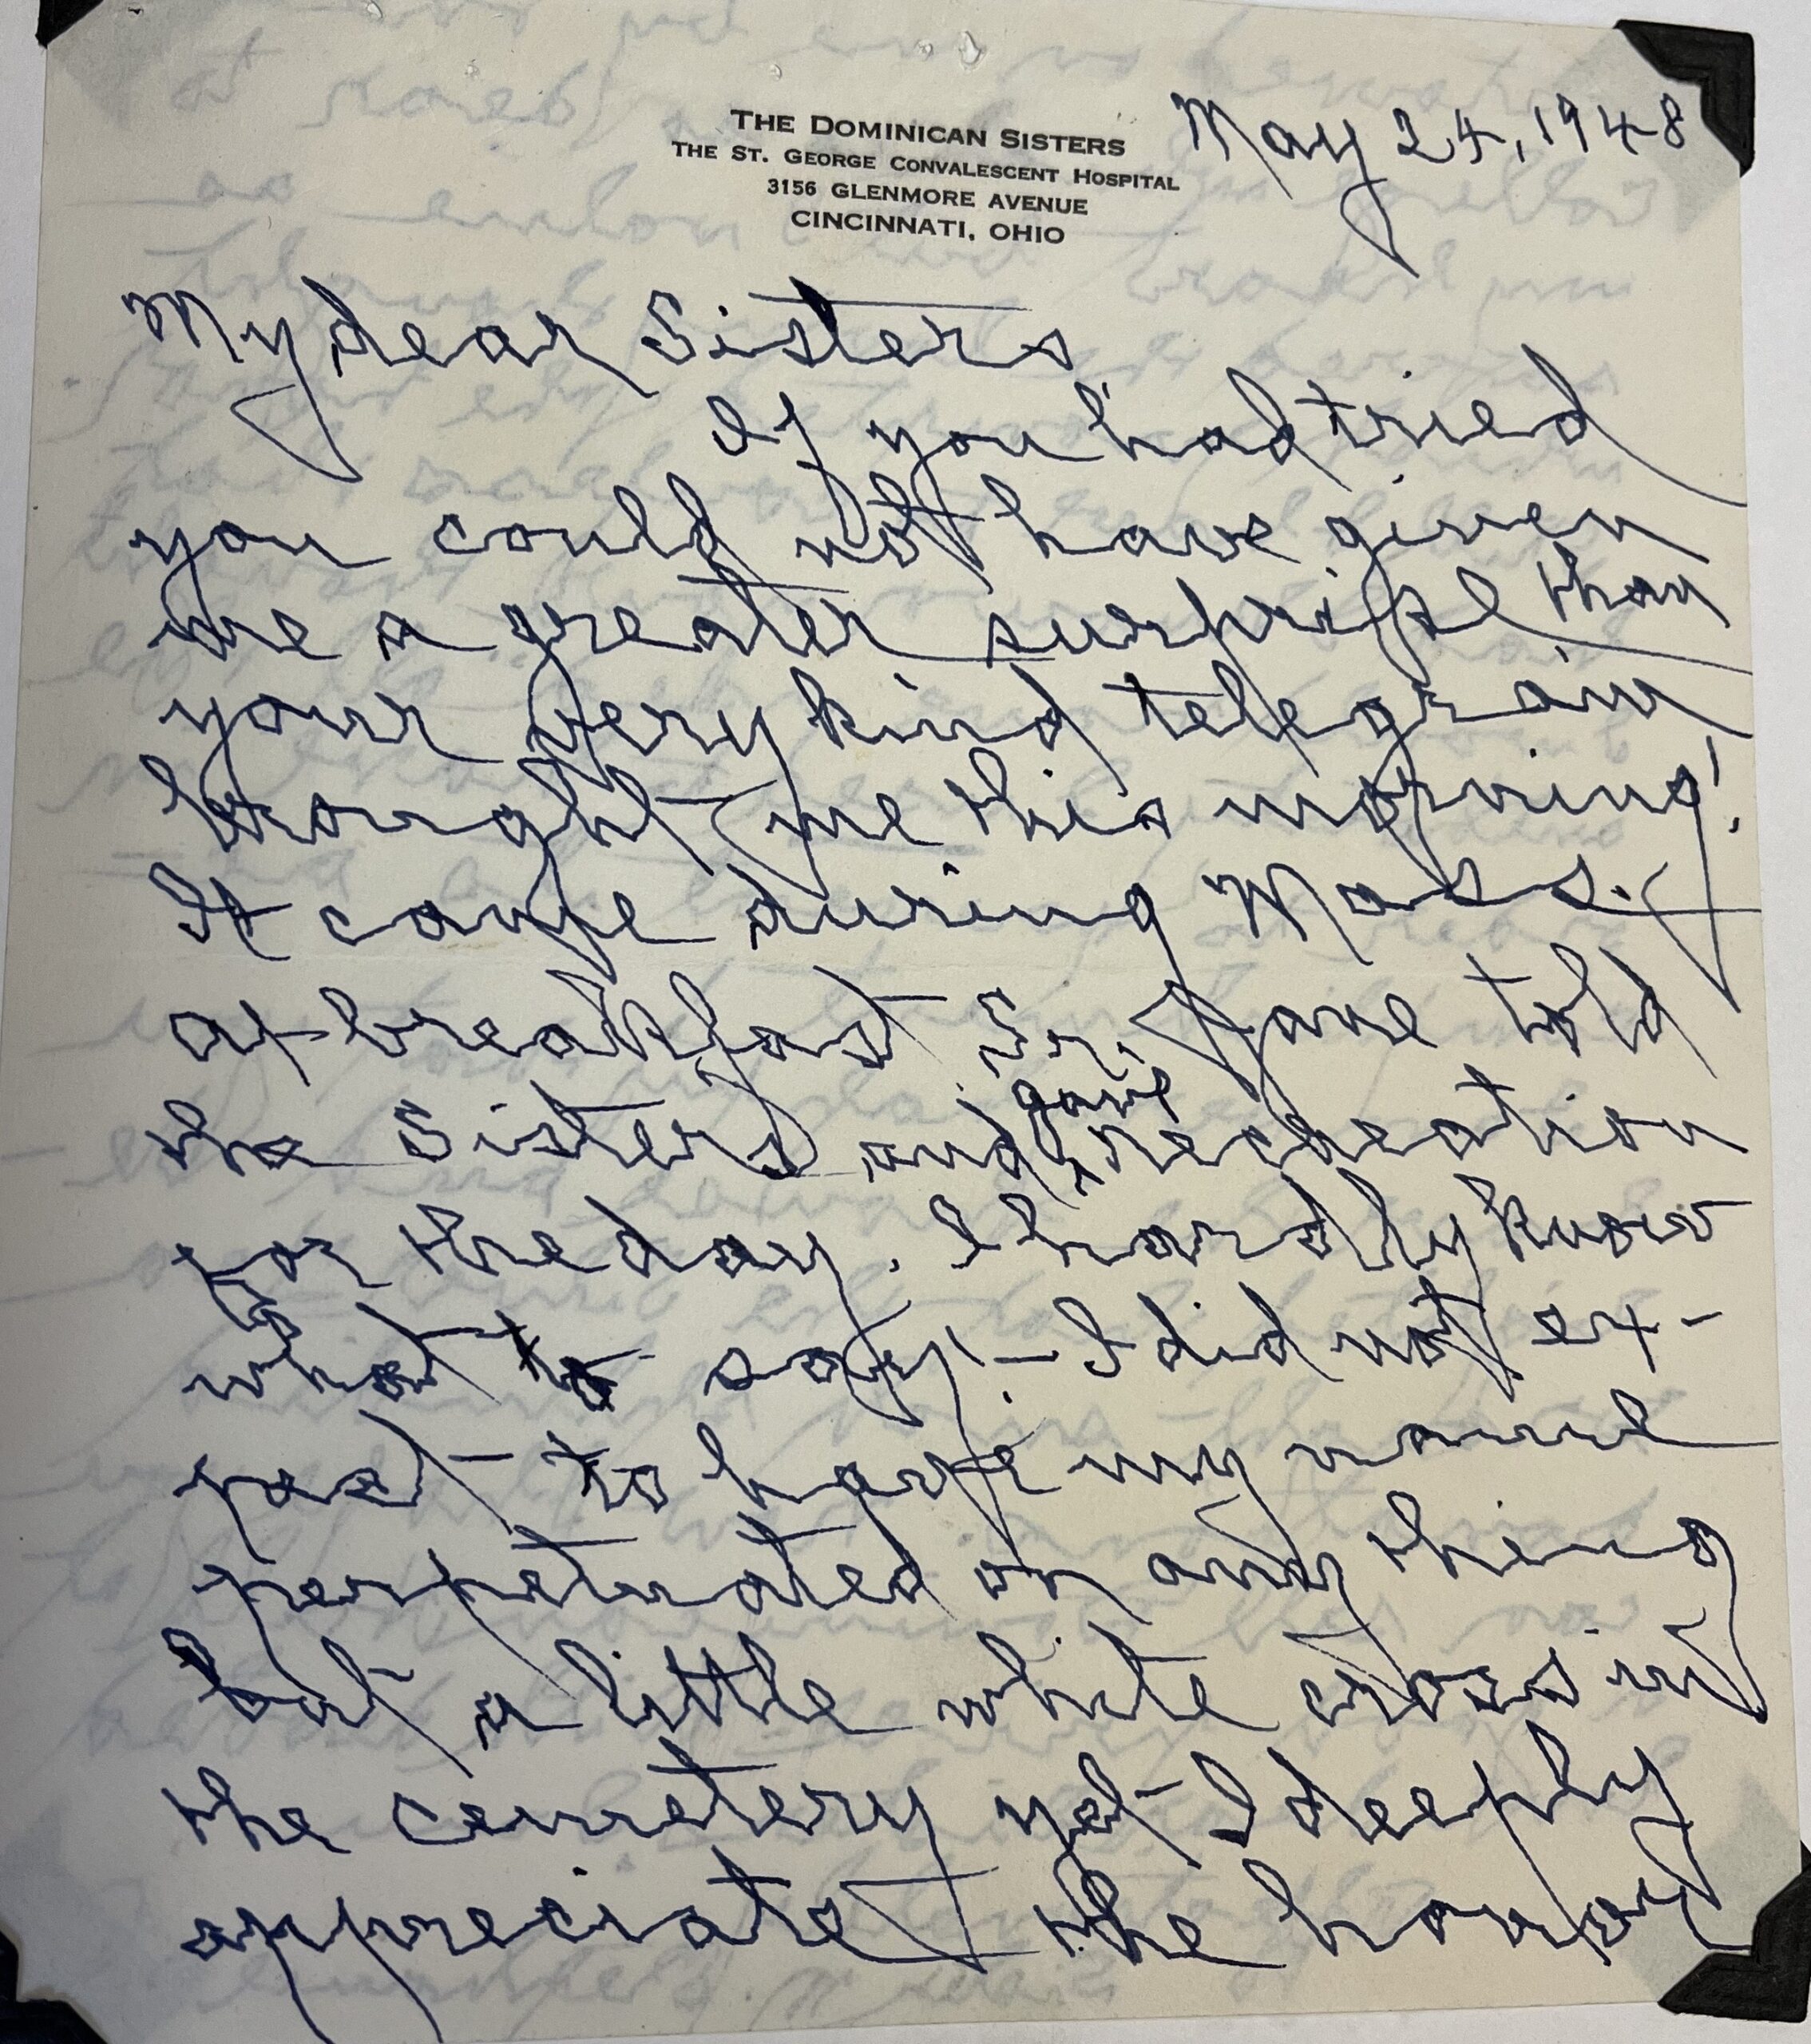 THE DOMINICAN SISTERS
THE ST. GEORGE CONVALESCENT HOSPITAL
3156 GLENMORE AVENUE
CINCINNATI, OHIO
May 24, 1948
My dear Sisters
If you had tried
you could not have given
me a greater surprise than
your very kind telegram
brought me this morning!
It came during Mass.
at breakfast Sr. Jane told
the Sisters and gave recreation
for the day. I hardly know
what to say! - I did not ex-
pect to have my name
perpetuated on any thing
but a little white cross in
the cemetery yet I deeply
appreciate the honor